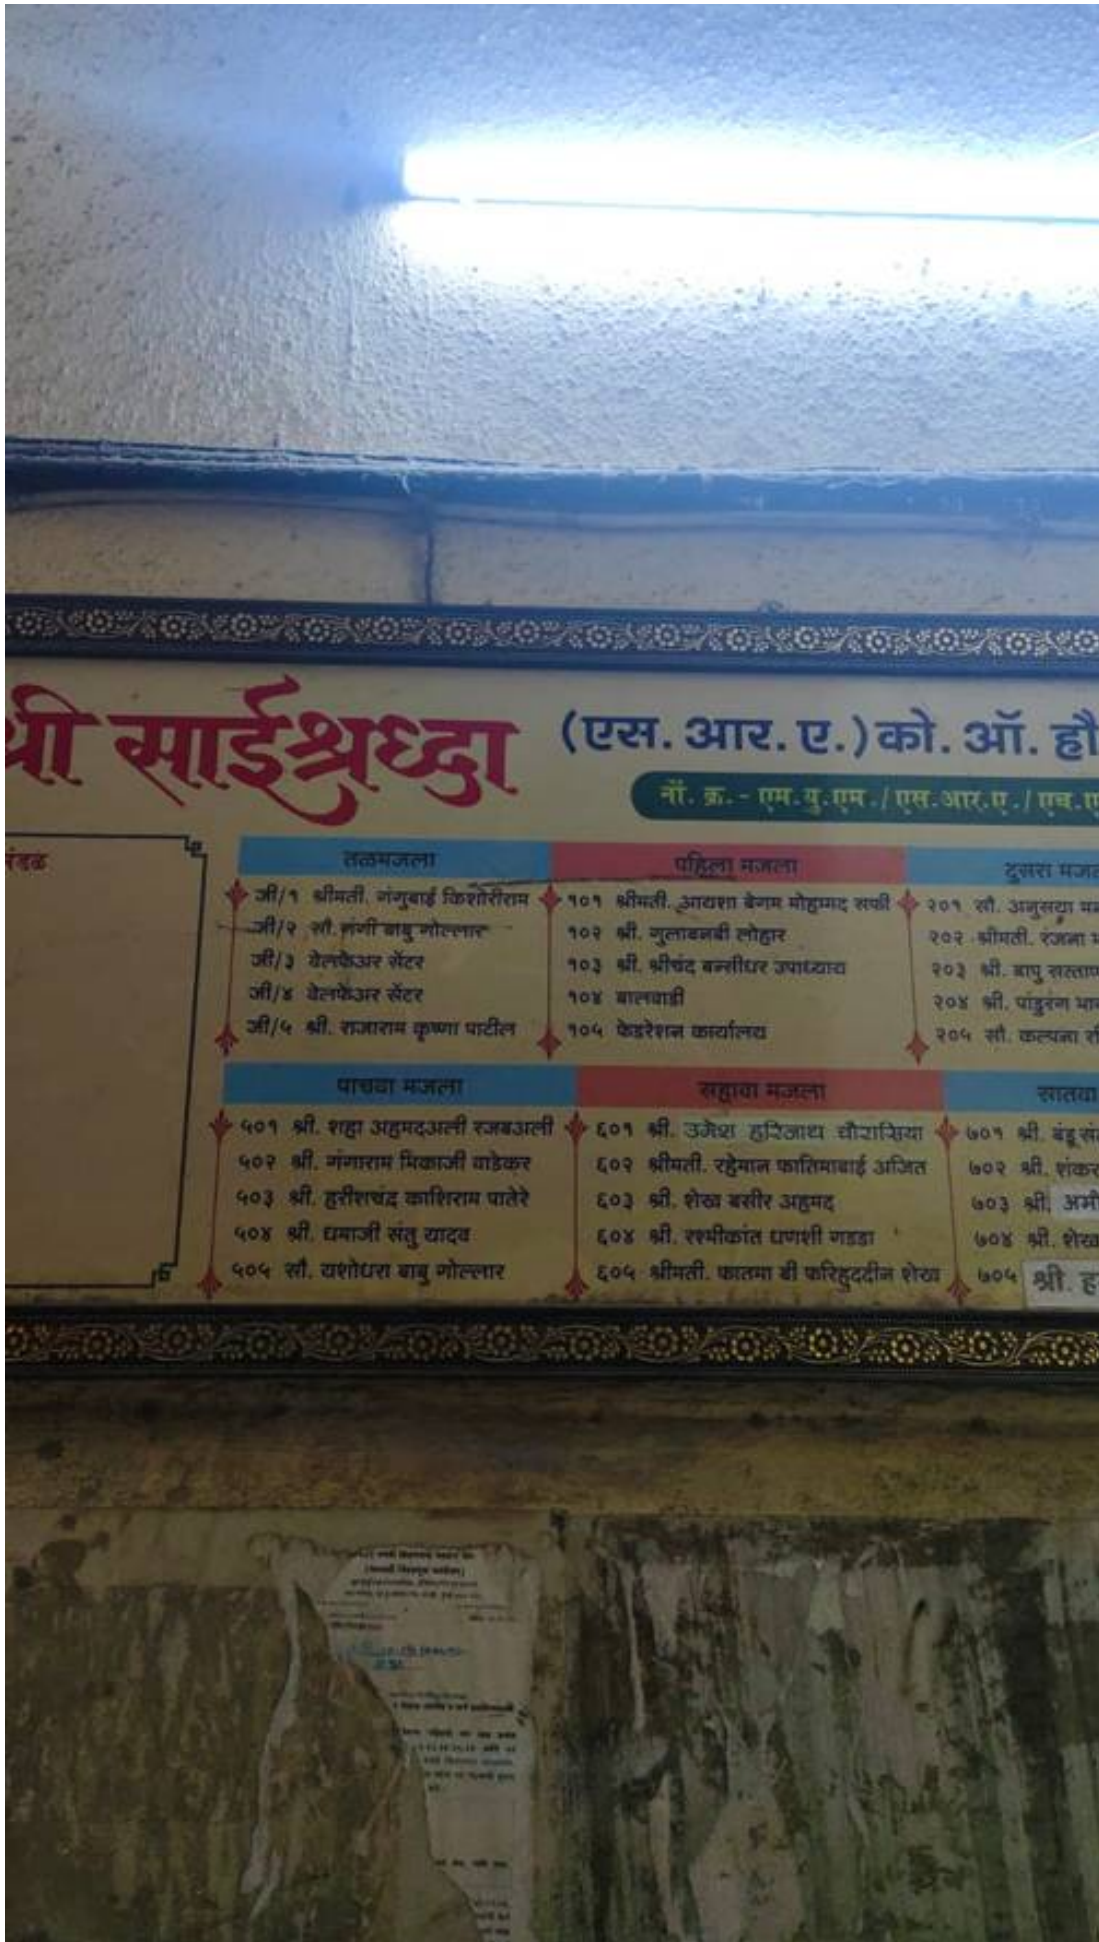 श्री साईश्रध्दा (एस.आर.ए.) को.ऑ. हौ
नों. क्र. - एम.यु.एम./एस.आर.ए./एच.ए
मंडळ
तळमजला
जी/१ श्रीमती. गंगुबाई किशोरीराम
जी/२ सौ. गंगी बाबु गोल्लार
जी/३ वेलफेअर सेंटर
जी/४ वेलफेअर सेंटर
जी/५ श्री. राजाराम कृष्णा पाटील
पहिला मजला
१०१ श्रीमती. आयशा बेगम मोहम्मद सफी
१०२ श्री. गुलाबनबी लोहार
१०३ श्री. श्रीचंद बन्सीधर उपाध्याय
१०४ बालवाडी
१०५ फेडरेशन कार्यालय
दुसरा मजल
२०१ सौ. अनुसया
२०२ श्रीमती. रंजना
२०३ श्री. बापु
२०४ श्री. पांडुरंग
२०५ सौ. कल्पना
पाचवा मजला
५०१ श्री. शहा अहमदअली रजबअली
५०२ श्री. गंगाराम भिकाजी वाडेकर
५०३ श्री. हरीशचंद्र काशिराम पातेरे
५०४ श्री. धमाजी संतु यादव
५०५ सौ. यशोधरा बाबु गोल्लार
सहावा मजला
६०१ श्री. उमेश हरिनाथ चौरासिया
६०२ श्रीमती. रहेमान फातिमाबाई अजित
६०३ श्री. शेख बसीर अहमद
६०४ श्री. रश्मीकांत धणशी गडडा
६०५ श्रीमती. फातमा बी फरिहुददीन शेख
सातवा
७०१ श्री. बंडू
७०२ श्री. शंकर
७०३ श्री. अमी
७०४ श्री. शेख
७०५ श्री. ह